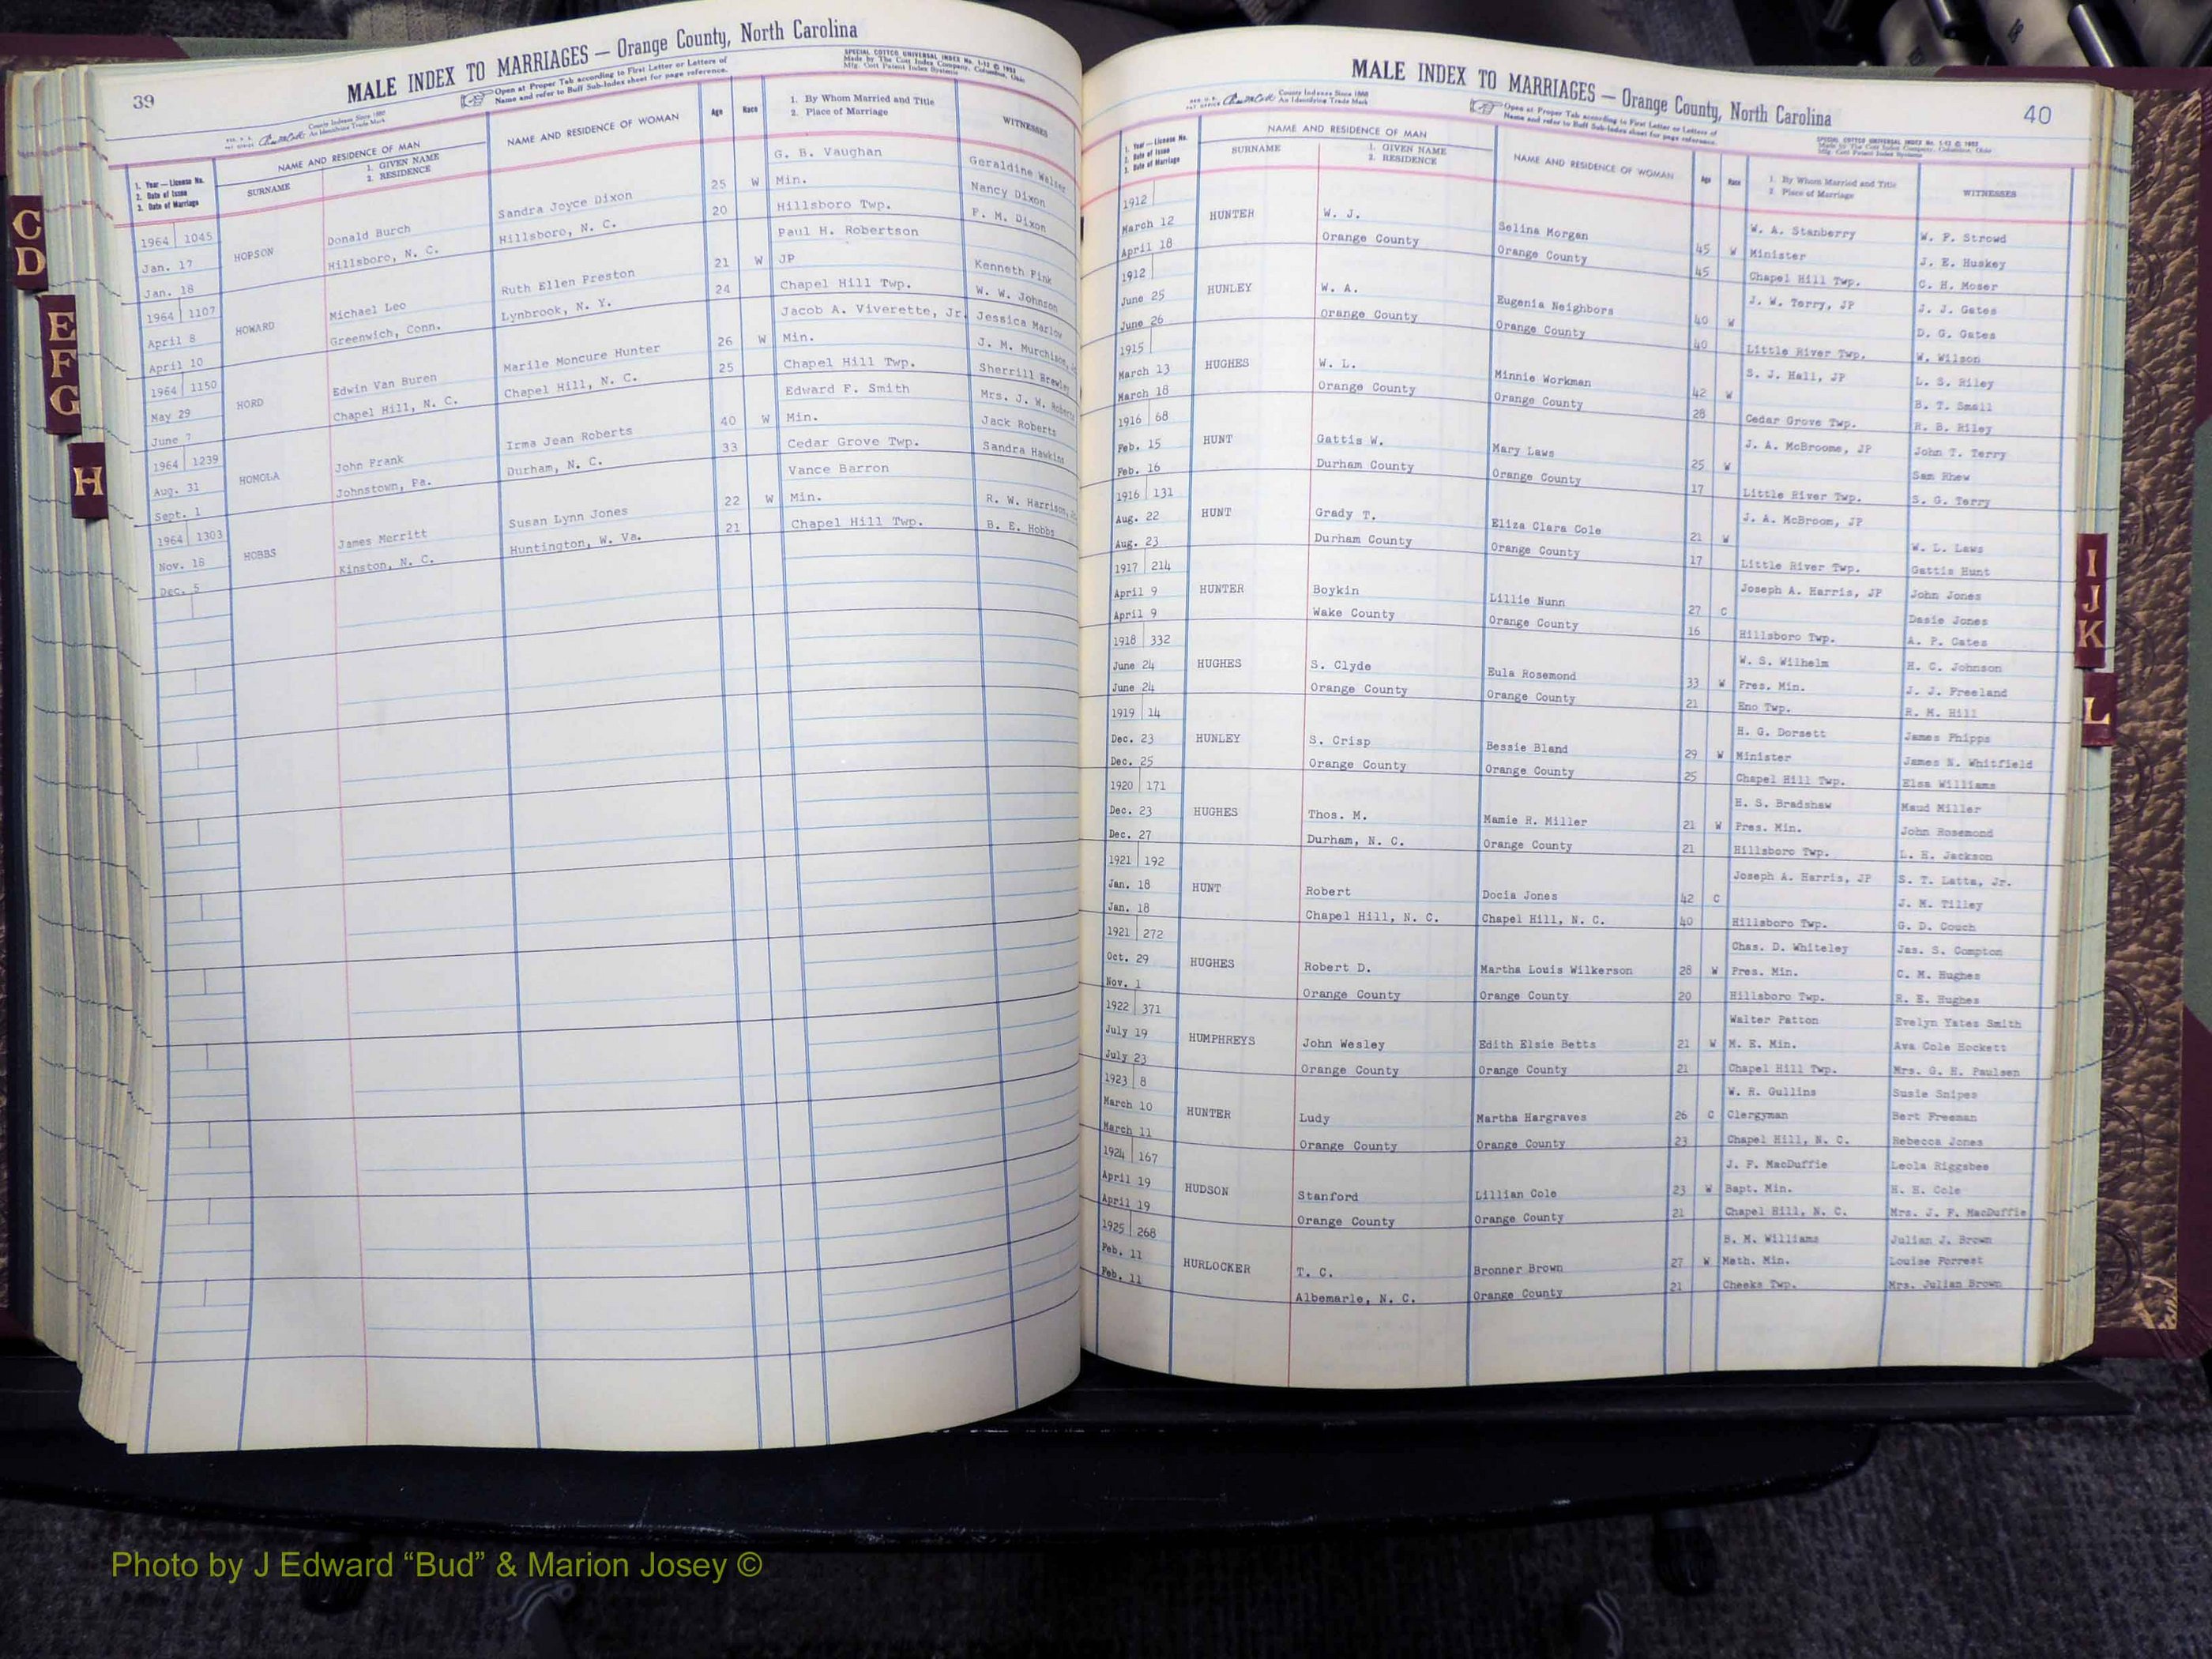 39
MALE INDEX TO MARRIAGES — Orange County, North Carolina
Open at Proper Tab according to First Letter or Letters of
Name and refer to Buff Sub-Index sheet for page reference.
SPECIAL COTTCO UNIVERSAL INDEX No. 1-12 © 1953
Made by The Cott Index Company, Columbus, Ohio
Mfg. Cott Patent Index Systems
County Indexes Since 1888
An Identifying Trade Mark
1. Year — License No.
2. Date of Issue
3. Date of Marriage
NAME AND RESIDENCE OF MAN
SURNAME
1. GIVEN NAME
2. RESIDENCE
NAME AND RESIDENCE OF WOMAN
Age
Race
1. By Whom Married and Title
2. Place of Marriage
WITNESSES
1964 1045 HOPSON Donald Burch Sandra Joyce Dixon 25 W G. B. Vaughan Geraldine Walter
Jan. 17 Min. Nancy Dixon
Jan. 18 Hillsboro, N. C. Hillsboro, N. C. 20 Hillsboro Twp. F. M. Dixon
1964 1107 HOWARD Michael Leo Ruth Ellen Preston 21 W Paul H. Robertson
April 8 JP Kenneth Fink
April 10 Greenwich, Conn. Lynbrook, N. Y. 24 Chapel Hill Twp. W. W. Johnson
1964 1150 HORD Edwin Van Buren Marile Moncure Hunter 26 W Jacob A. Viverette, Jr. Jessica Marlow
May 29 Min. J. M. Murchison
June 7 Chapel Hill, N. C. Chapel Hill, N. C. 25 Chapel Hill Twp. Sherrill Brewley
1964 1239 HOMOLA John Frank Irma Jean Roberts 40 W Edward F. Smith Mrs. J. W. Roberts
Aug. 31 Min. Jack Roberts
Sept. 1 Johnstown, Pa. Durham, N. C. 33 Cedar Grove Twp. Sandra Hawkins
1964 1303 HOBBS James Merritt Susan Lynn Jones 22 W Vance Barron
Nov. 18 Min. R. W. Harrison
Dec. 5 Kinston, N. C. Huntington, W. Va. 21 Chapel Hill Twp. B. E. Hobbs
C
D
E
F
G
H
MALE INDEX TO MARRIAGES — Orange County, North Carolina
40
County Indexes Since 1888
An Identifying Trade Mark
Open at Proper Tab according to First Letter or Letters of
Name and refer to Buff Sub-Index sheet for page reference.
SPECIAL COTTCO UNIVERSAL INDEX No. 1-12 © 1953
Made by The Cott Index Company, Columbus, Ohio
Mfg. Cott Patent Index Systems
1. Year — License No.
2. Date of Issue
3. Date of Marriage
NAME AND RESIDENCE OF MAN
SURNAME
1. GIVEN NAME
2. RESIDENCE
NAME AND RESIDENCE OF WOMAN
Age
Race
1. By Whom Married and Title
2. Place of Marriage
WITNESSES
1912 HUNTER W. J. Selina Morgan 45 W W. A. Stanberry W. F. Strowd
March 12 Minister J. E. Huskey
April 18 Orange County Orange County 45 Chapel Hill Twp. C. H. Moser
1912 HUNLEY W. A. Eugenia Neighbors 40 W J. W. Terry, JP J. J. Gates
June 25 D. G. Gates
June 26 Orange County Orange County 40 Little River Twp. W. Wilson
1915 HUGHES W. L. Minnie Workman 42 W S. J. Hall, JP L. S. Riley
March 13 B. T. Small
March 18 Orange County Orange County 28 Cedar Grove Twp. H. B. Riley
1916 68 HUNT Gattis W. Mary Laws 25 W J. A. McBroome, JP John T. Terry
Feb. 15 Sam Rhew
Feb. 16 Durham County Orange County 17 Little River Twp. S. G. Terry
1916 131 HUNT Grady T. Eliza Clara Cole 21 W J. A. McBroom, JP
Aug. 22 W. L. Laws
Aug. 23 Durham County Orange County 17 Little River Twp. Gattis Hunt
1917 214 HUNTER Boykin Lillie Nunn 27 C Joseph A. Harris, JP John Jones
April 9 Dasie Jones
April 9 Wake County Orange County 16 Hillsboro Twp. A. P. Cates
1918 332 HUGHES S. Clyde Eula Rosemond 33 W W. S. Wilhelm H. C. Johnson
June 24 Pres. Min. J. J. Freeland
June 24 Orange County Orange County 21 Eno Twp. R. M. Hill
1919 14 HUNLEY S. Crisp Bessie Bland 29 W H. G. Dorsett James Phipps
Dec. 23 Minister James N. Whitfield
Dec. 25 Orange County Orange County 25 Chapel Hill Twp. Elsa Williams
1920 171 HUGHES Thos. M. Mamie R. Miller 21 W H. S. Bradshaw Maud Miller
Dec. 23 Pres. Min. John Rosemond
Dec. 27 Durham, N. C. Orange County 21 Hillsboro Twp. L. H. Jackson
1921 192 HUNT Robert Docia Jones 42 C Joseph A. Harris, JP S. T. Latta, Jr.
Jan. 18 J. M. Tilley
Jan. 18 Chapel Hill, N. C. Chapel Hill, N. C. 40 Hillsboro Twp. G. D. Couch
1921 272 HUGHES Robert D. Martha Louis Wilkerson 28 W Chas. D. Whiteley Jas. S. Compton
Oct. 29 Pres. Min. C. M. Hughes
Nov. 1 Orange County Orange County 20 Hillsboro Twp. R. E. Hughes
1922 371 HUMPHREYS John Wesley Edith Elsie Betts 21 W Walter Patton Evelyn Yates Smith
July 19 M. E. Min. Ava Cole Hockett
July 23 Orange County Orange County 21 Chapel Hill Twp. Mrs. G. H. Paulsen
1923 8 HUNTER Ludy Martha Hargraves 26 C W. R. Gullins Susie Snipes
March 10 Clergyman Bert Freeman
March 11 Orange County Orange County 23 Chapel Hill, N. C. Rebecca Jones
1924 167 HUDSON Stanford Lillian Cole 23 W J. F. MacDuffie Leola Riggsbee
April 19 Bapt. Min. H. H. Cole
April 19 Orange County Orange County 21 Chapel Hill, N. C. Mrs. J. F. MacDuffie
1925 268 HURLOCKER T. C. Bronner Brown 27 W B. M. Williams Julian J. Brown
Feb. 11 Meth. Min. Louise Forrest
Feb. 11 Albemarle, N. C. Orange County 21 Cheeks Twp. Mrs. Julian Brown
I
J
K
L
Photo by J Edward “Bud” & Marion Josey ©